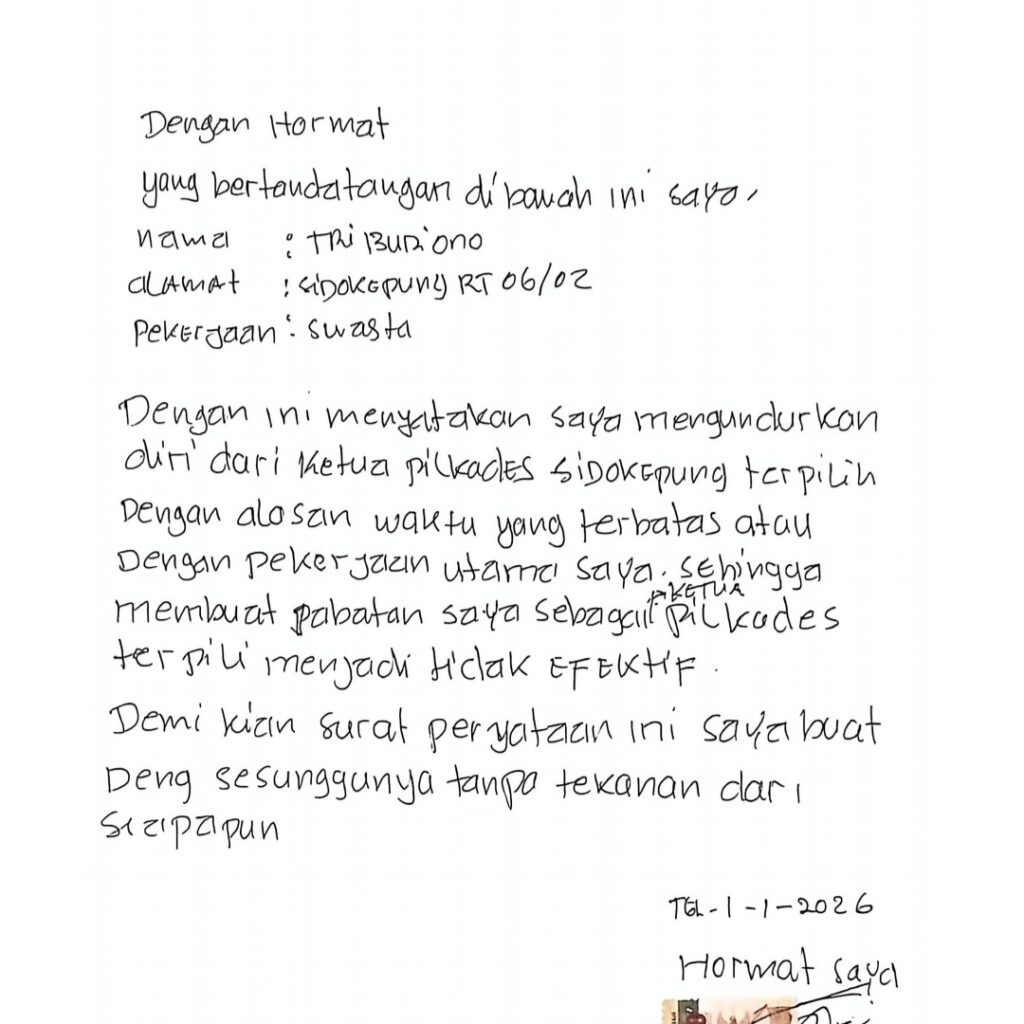 Dengan Hormat
yang bertandatangan di bawah ini saya,
nama : TRi BUDiono
ALAMAT : SiDOKEpung RT 06/02
Pekerjaan : swasta
Dengan ini menyatakan saya mengundurkan
diri dari Ketua pilkades SiDOKEpung terpilih
Dengan alasan waktu yang terbatas atau
Dengan pekerjaan utama saya. sehingga
KETUA
membuat pabatan saya sebagai pilkades
terpili menjadi tidak EFEKTIF.
Demi kian surat peryataan ini saya buat
Deng sesunggunya tanpa tekanan dari
siapapun
TGL-1-1-2026
Hormat saya